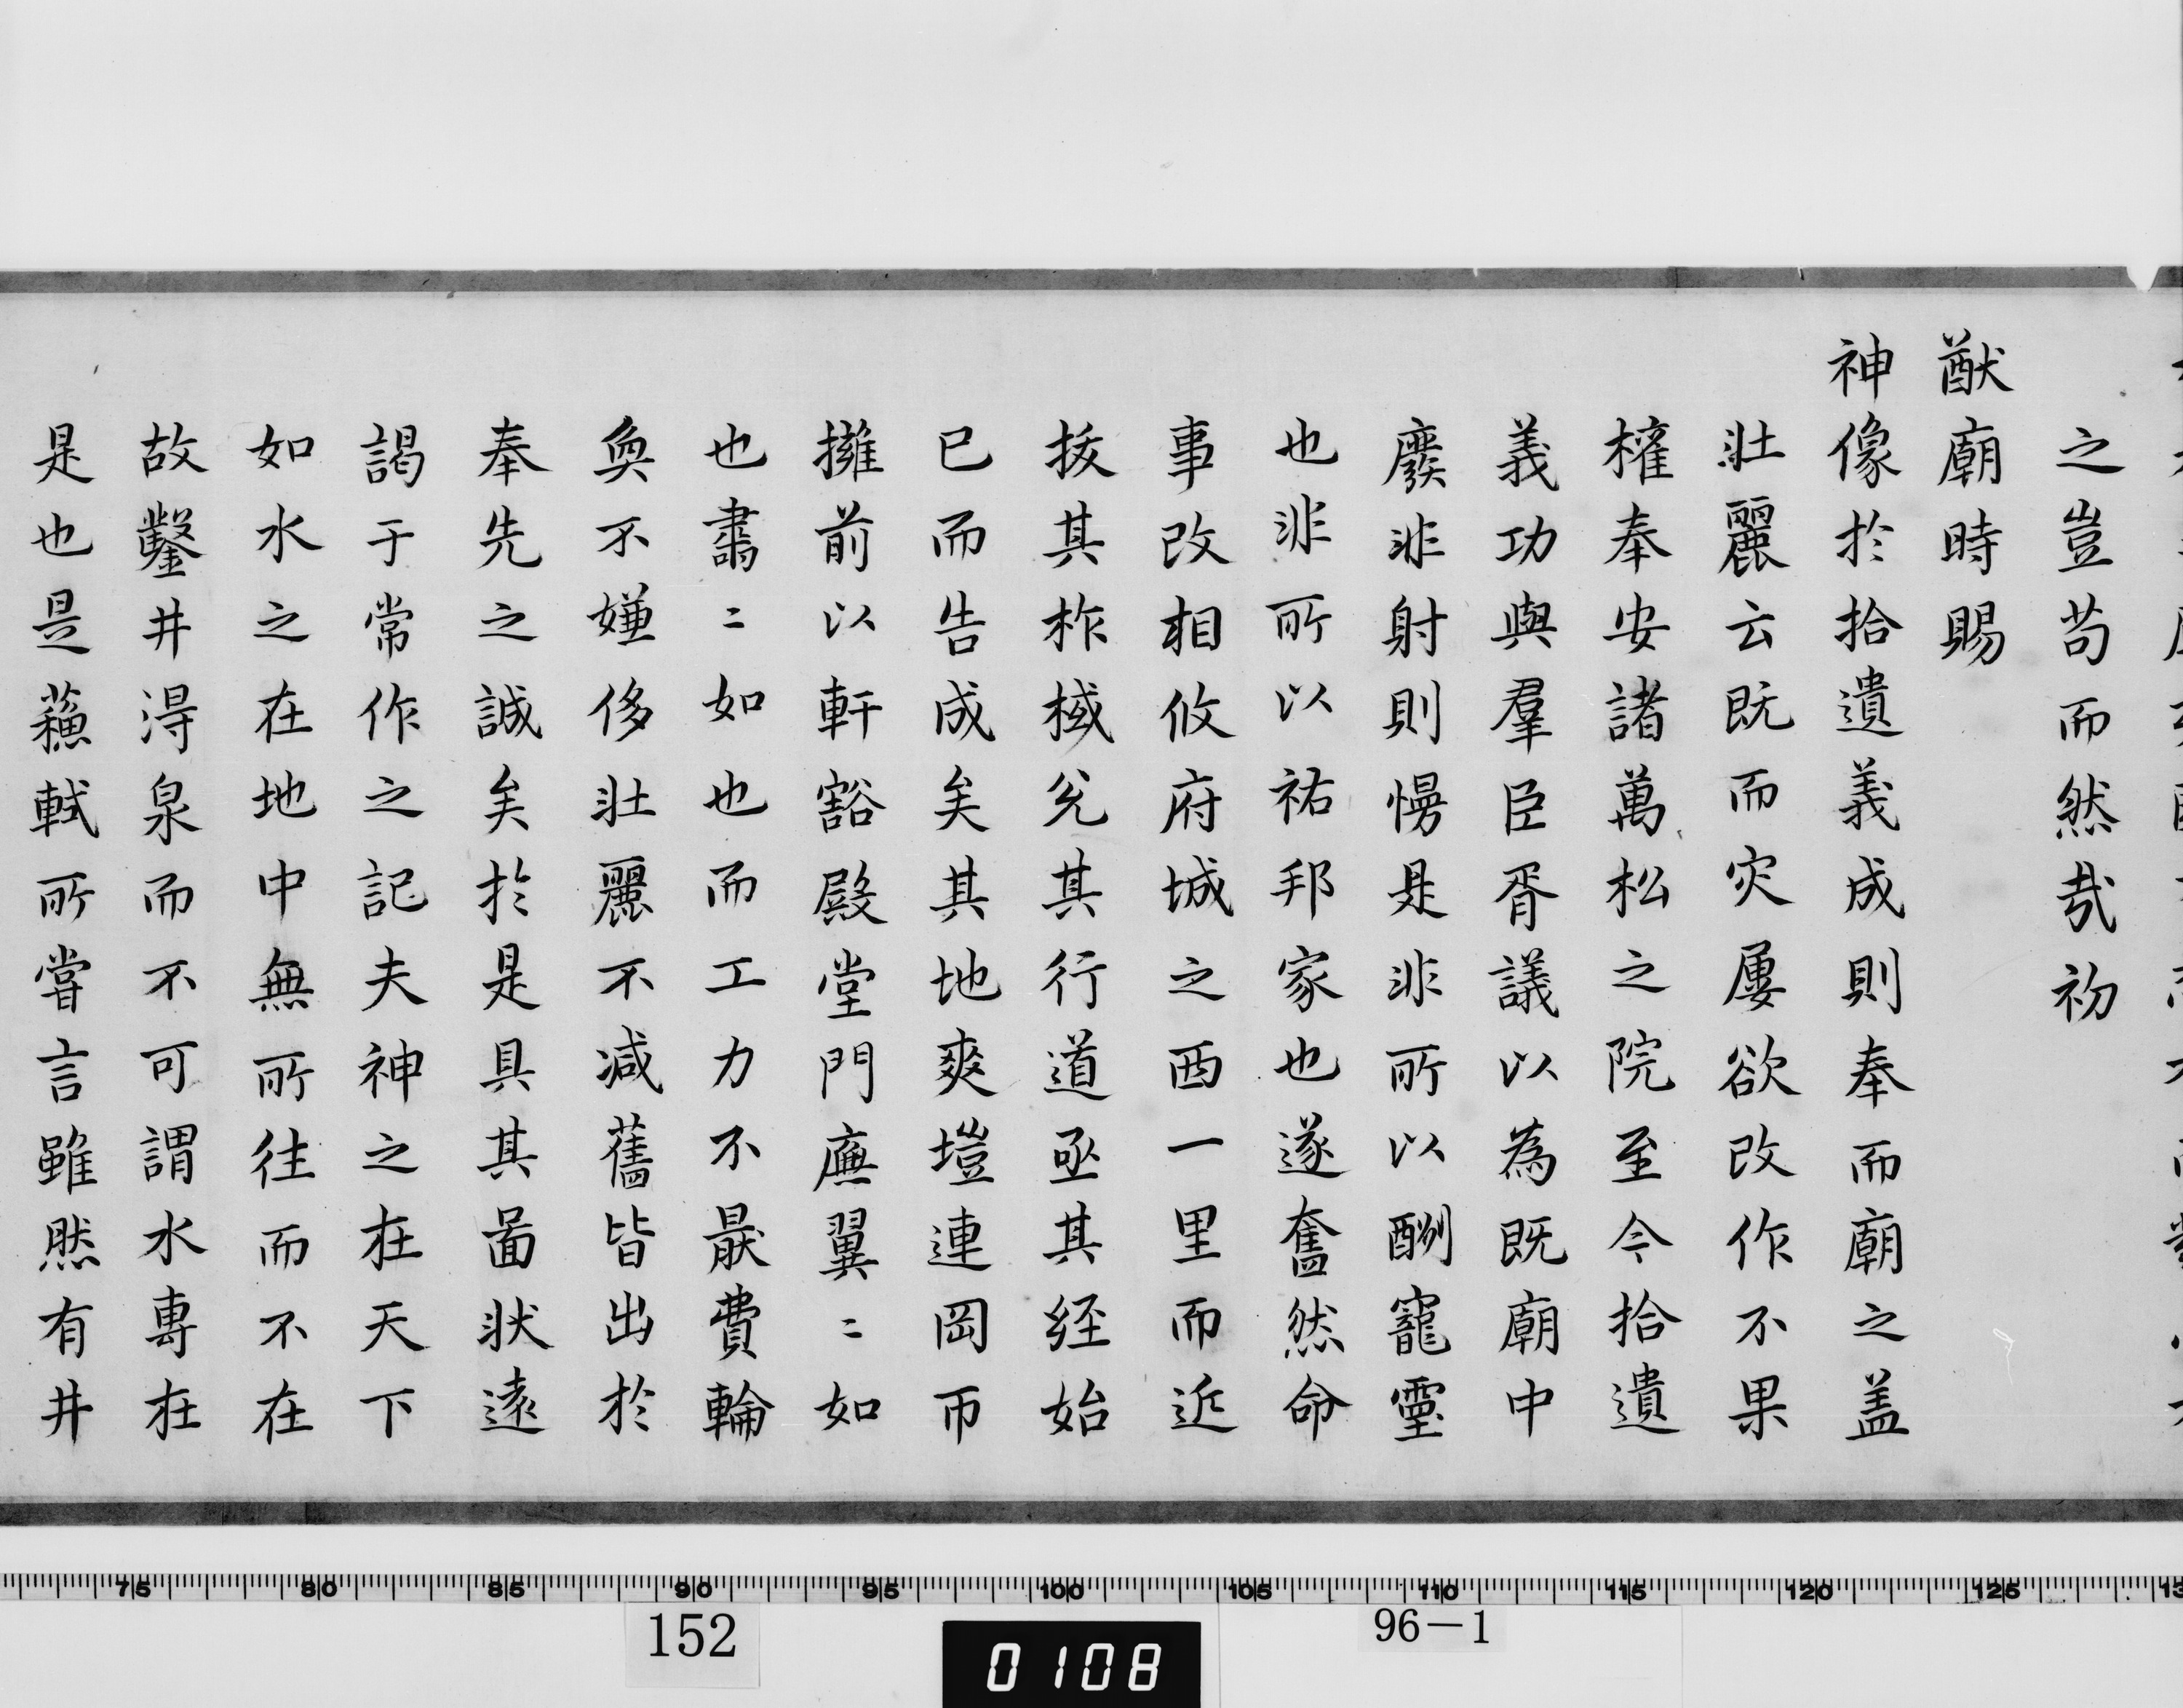 之豈苟而然哉初
猷廟時賜
神像於拾遺義成則奉而廟之盖
壯麗云既而灾屢欲改作不果
権奉安諸萬松之院至今拾遺
義功與羣臣胥議以為既廟中
廢非射則慢是非所以酬寵靈
也非所以祐邦家也遂奮然命
事改相攸府城之西一里而近
拔其柞棫兊其行道亟其経始
已而告成矣其地爽塏連岡帀
擁前以軒豁殿堂門廡翼〻如
也肅〻如也而工力不厭費輪
奐不嫌侈壯麗不减舊皆出於
奉先之誠矣於是具其啚狀遠
謁于常作之記夫神之在天下
如水之在地中無所往而不在
故鑿井淂泉而不可謂水專在
是也是蘓軾所嘗言雖然有井
75 80 85 90 95 100 105 110 115 120 125 13
152
0108
96-1